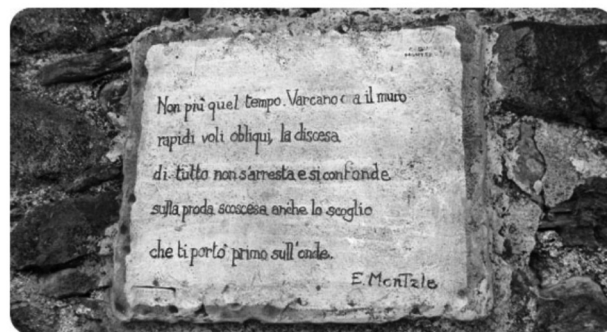 Non più quel tempo. Varcano a il muro
rapidi voli obliqui, la discesa
di tutto non s'arresta e si confonde
sulla proda scoscesa anche lo scoglio
che ti portò primo sull'onde.
E. Montale